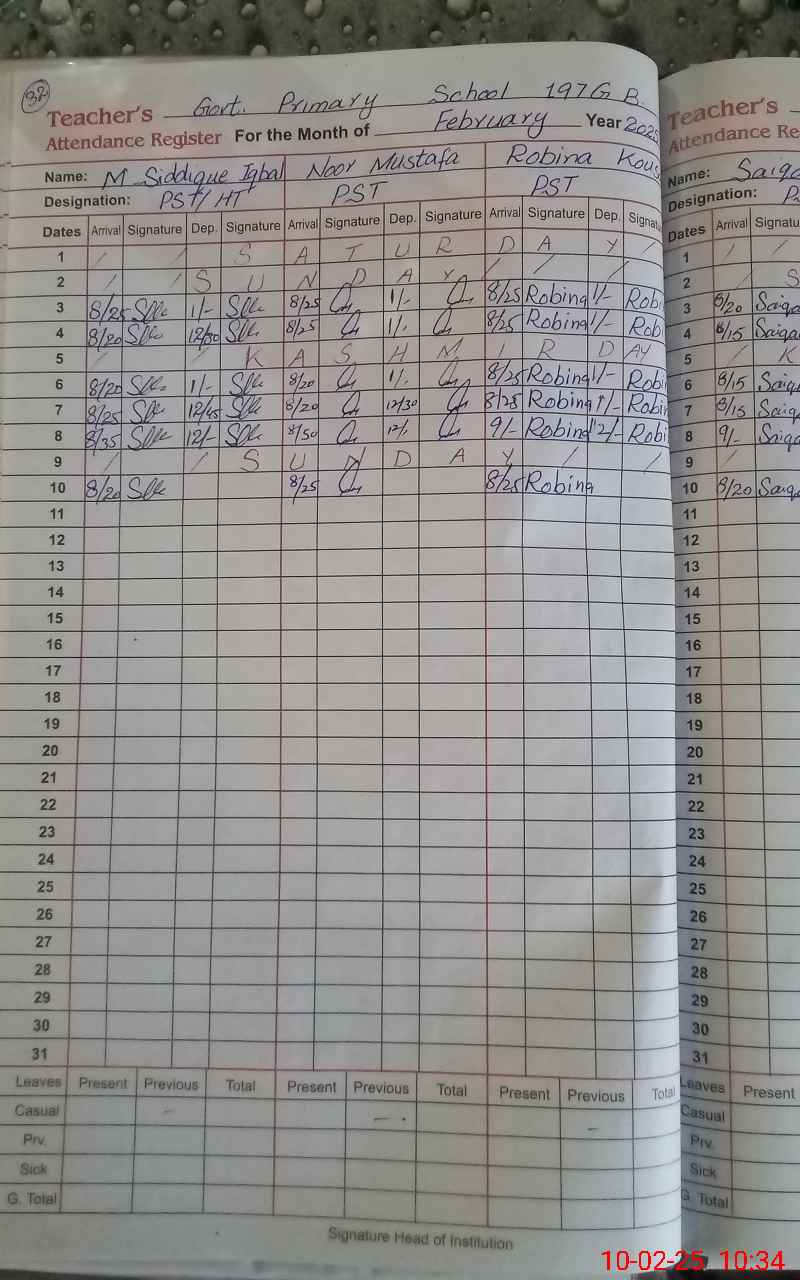 32
Teacher's Govt. Primary School 197 G B. Teacher's
Attendance Register For the Month of February Year 2025 Attendance Re
Name: M Siddique Iqbal Noor Mustafa Robina Kous Name: Saiqa
Designation: PST/HT PST PST Designation: P
Dates Arrival Signature Dep. Signature Arrival Signature Dep. Signature Arrival Signature Dep. Signatu Dates Arrival Signatu
1 / / S A T U R D A Y / 1 / /
2 / / S U N D A Y / / / 2 / S
3 8/25 1/- 8/25 1/- 8/25 Robina 1/- Robi 3 8/20 Saiqa
4 8/20 12/30 8/25 1/- 8/25 Robina 1/- Rob 4 8/15 Saiqa
5 / / K A S H M I R D AY 5 / K
6 8/20 1/- 8/20 1/- 8/25 Robina 1/- Robi 6 8/15 Saiq
7 8/25 12/45 8/20 12/30 8/25 Robina 1/- Robin 7 8/15 Saiq
8 8/35 12/- 8/50 12/- 9/- Robina 12/- Robi 8 9/- Saiqa
9 / / S U N D A Y / / 9 /
10 8/20 8/25 8/25 Robina 10 8/20 Saiqa
11 11
12 12
13 13
14 14
15 15
16 16
17 17
18 18
19 19
20 20
21 21
22 22
23 23
24 24
25 25
26 26
27 27
28 28
29 29
30 30
31 31
Leaves Present Previous Total Present Previous Total Present Previous Total Leaves Present
Casual - - . - Casual
Prv. Prv.
Sick Sick
G. Total G. Total
Signature Head of Institution
10-02-25 10:34